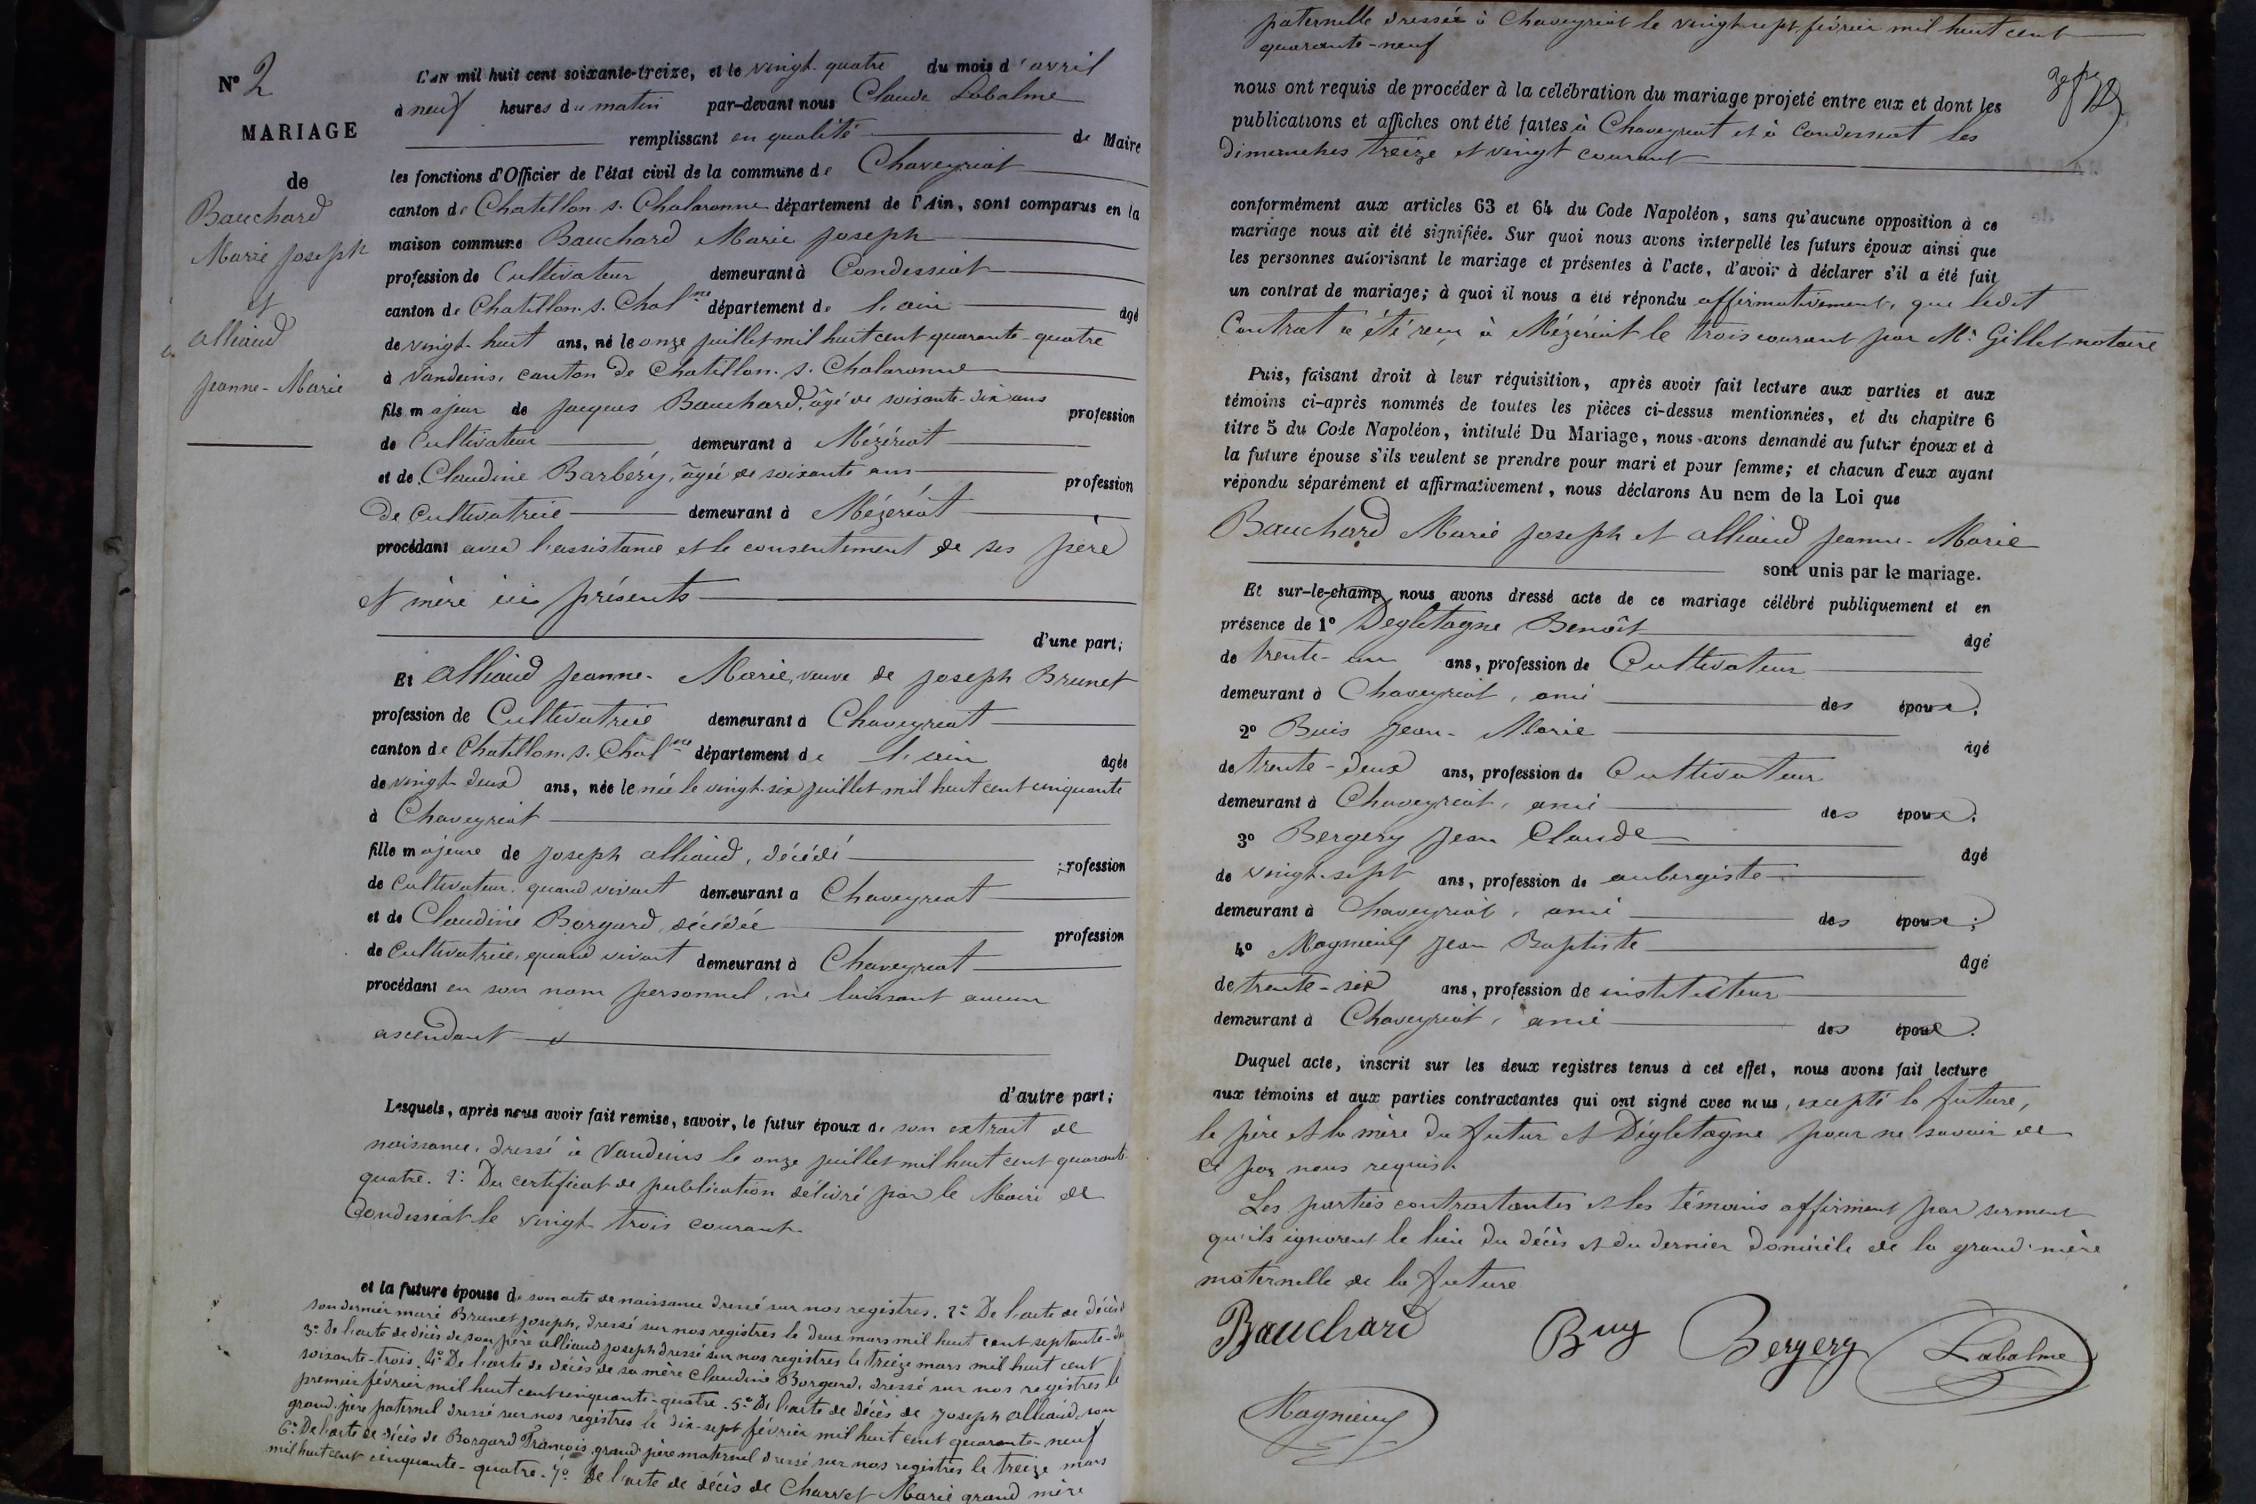 N° 2
MARIAGE
de
Bauchard
Marie Joseph
et
Alliaud
Jeanne-Marie
L'AN mil huit cent soixante-treize, et le vingt-quatre du mois d'avril
à neuf heures du matin par-devant nous Claude Labalme
remplissant en qualité de Maire
les fonctions d'Officier de l'état civil de la commune de Chaveyriat
canton de Chatillon s. Chalaronne département de l'Ain, sont comparus en la
maison commune Bauchard Marie Joseph
profession de Cultivateur demeurant à Condessiat
canton de Chatillon. s. Chal^ne département de l'ain âgé
de vingt-huit ans, né le onze juillet mil huit cent quarante-quatre
à Vandeins, canton de Chatillon. s. Chalaronne
fils majeur de Jacques Bauchard, âgé de soixante-dix ans profession
de Cultivateur demeurant à Mézériat
et de Claudine Barbéry, âgée de soixante ans profession
de Cultivatrice demeurant à Mézériat
procédant avec l'assistance et le consentement de ses père
et mère ici présents
d'une part;
Et Alliaud Jeanne-Marie, veuve de Joseph Brunet
profession de Cultivatrice demeurant à Chaveyriat
canton de Chatillon. s. Chal^ne département de l'ain âgée
de vingt-deux ans, née le née le vingt-six juillet mil huit cent cinquante
à Chaveyriat
fille majeure de Joseph Alliaud, décédé profession
de Cultivateur quand vivait demeurant à Chaveyriat
et de Claudine Borgard, décédée profession
de Cultivatrice, quand vivait demeurant à Chaveyriat
procédant en son nom personnel, ne laissant aucun
ascendant
d'autre part;
Lesquels, après nous avoir fait remise, savoir, le futur époux de son extrait de
naissance, dressé à Vandeins le onze juillet mil huit cent quarante-
quatre. 2° Du certificat de publication délivré par le Maire de
Condessiat le vingt trois courant.
et la future épouse de son acte de naissance dressé sur nos registres. 2° De l'acte de décès d
son dernier mari Brunet Joseph, dressé sur nos registres le deux mars mil huit cent septante-
3° De l'acte de décès de son père Alliaud Joseph dressé sur nos registres le treize mars mil huit cent
soixante-trois. 4° De l'acte de décès de sa mère Claudine Borgard, dressé sur nos registres le
premier février mil huit cent cinquante-quatre. 5° De l'acte de décès de Joseph Alliaud, son
grand-père paternel dressé sur nos registres le dix-sept février mil huit cent quarante-neuf
6° De l'acte de décès de Borgard François, grand-père maternel dressé sur nos registres le treize mars
mil huit cent cinquante-quatre. 7° De l'acte de décès de Charvet Marie grand mère
paternelle dressé à Chaveyriat le vingt-sept février mil huit cent
quarante-neuf
nous ont requis de procéder à la célébration du mariage projeté entre eux et dont les
publications et affiches ont été faites à Chaveyriat et à Condessiat les
dimanches treize et vingt courant
conformément aux articles 63 et 64 du Code Napoléon, sans qu'aucune opposition à ce
mariage nous ait été signifiée. Sur quoi nous avons interpellé les futurs époux ainsi que
les personnes autorisant le mariage et présentes à l'acte, d'avoir à déclarer s'il a été fait
un contrat de mariage; à quoi il nous a été répondu affirmativement, que ledit
Contrat a été reçu à Mézériat le trois courant par M° Gillet notaire
Puis, faisant droit à leur réquisition, après avoir fait lecture aux parties et aux
témoins ci-après nommés de toutes les pièces ci-dessus mentionnées, et du chapitre 6
titre 5 du Code Napoléon, intitulé Du Mariage, nous avons demandé au futur époux et à
la future épouse s'ils veulent se prendre pour mari et pour femme; et chacun d'eux ayant
répondu séparément et affirmativement, nous déclarons Au nom de la Loi que
Bauchard Marie Joseph et Alliaud Jeanne-Marie
sont unis par le mariage.
Et sur-le-champ, nous avons dressé acte de ce mariage célébré publiquement et en
présence de 1° Degletagne Benoît âgé
de trente-un ans, profession de Cultivateur
demeurant à Chaveyriat, ami des époux.
2° Buis Jean-Marie âgé
de trente-deux ans, profession de Cultivateur
demeurant à Chaveyriat, ami des époux.
3° Bergery Jean Claude âgé
de vingt-sept ans, profession de aubergiste
demeurant à Chaveyriat, ami des époux.
4° Magnieux Jean Baptiste âgé
de trente-six ans, profession de instituteur
demeurant à Chaveyriat, ami des époux.
Duquel acte, inscrit sur les deux registres tenus à cet effet, nous avons fait lecture
aux témoins et aux parties contractantes qui ont signé avec nous, excepté la future,
le père et la mère du futur et Dégletagne pour ne savoir de
ce par nous requis.
Les parties contractantes et les témoins affirment par serment
qu'ils ignorent le lieu du décès et du dernier domicile de la grand-mère
maternelle de la future
Bauchard Buy Bergery Labalme
Magnieux